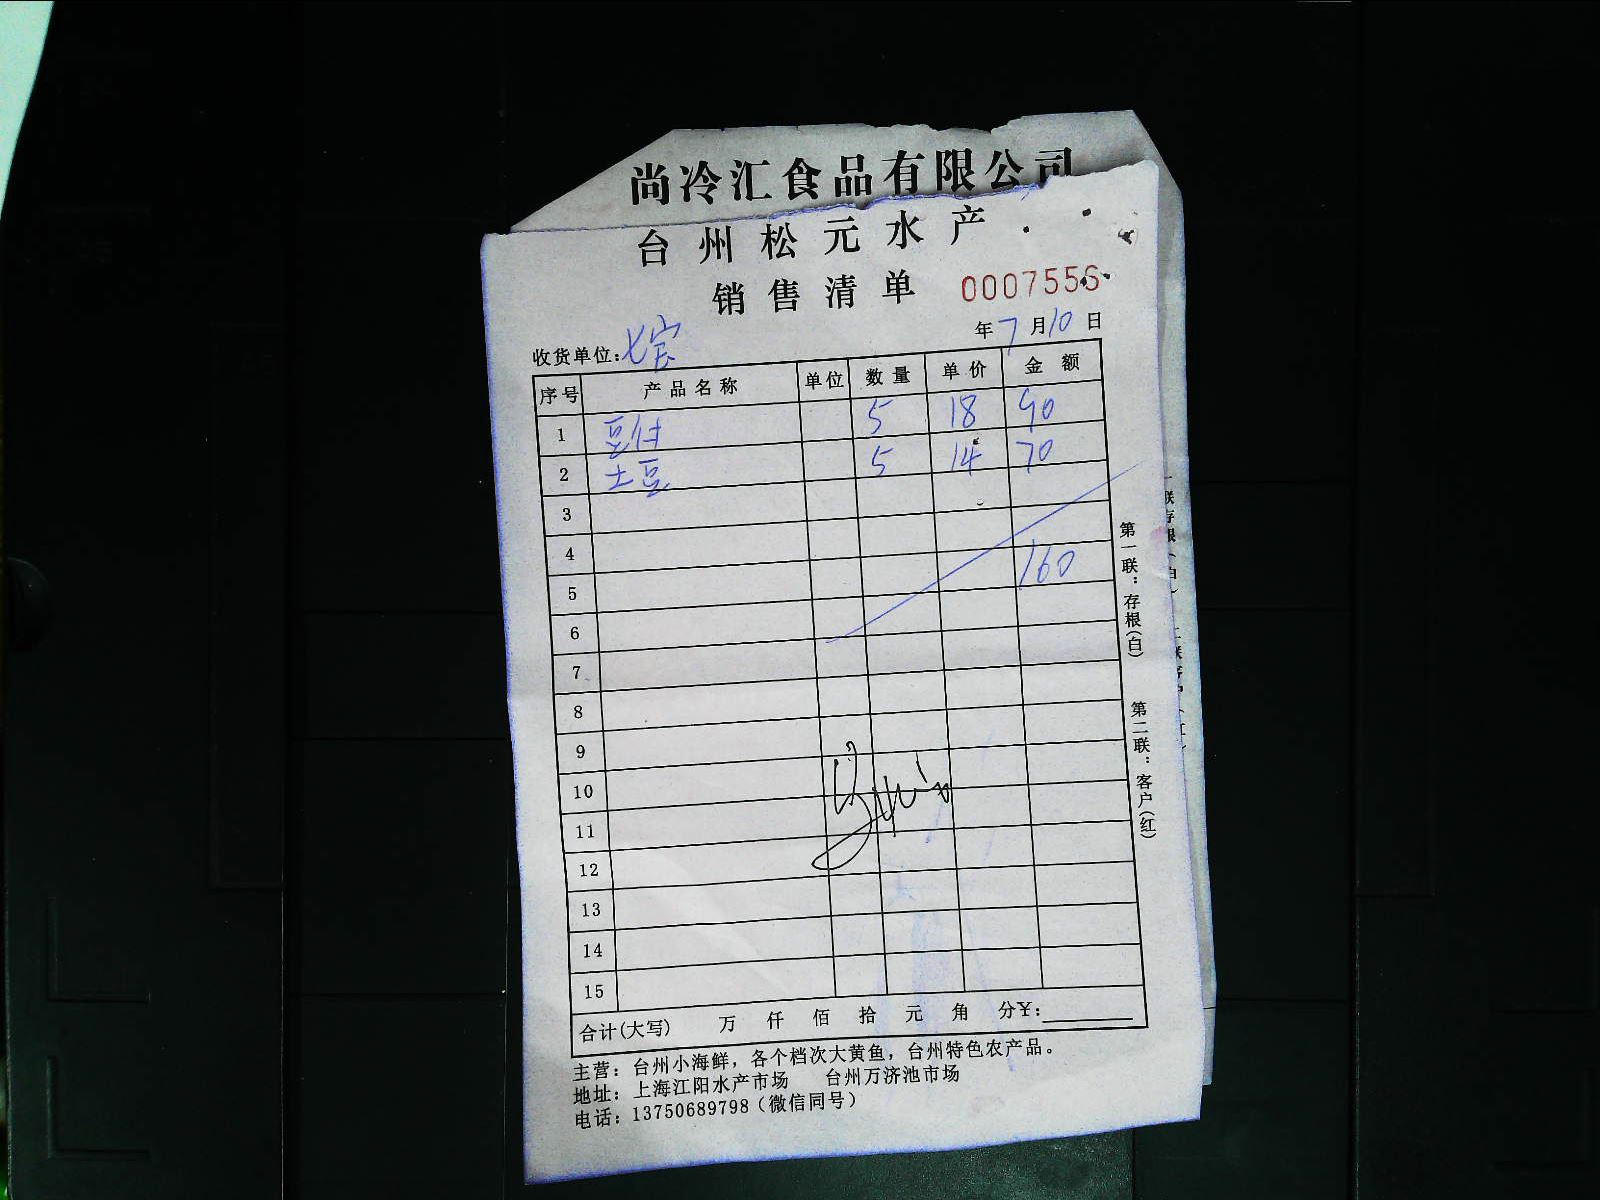 尚冷汇食品有限公司
台州松元水产
销售清单 0007556
年7月10日
收货单位:七宝
序号 产品名称 单位 数量 单价 金额
1 豆付 5 18 90
2 土豆 5 14 70
3
4
5 160
6
7
8
9
10
11
12
13
14
15
合计(大写) 万 仟 佰 拾 元 角 分¥:
主营：台州小海鲜，各个档次大黄鱼，台州特色农产品。
地址：上海江阳水产市场 台州万济池市场
电话：13750689798（微信同号）
第一联：存根(白)
第二联：客户(红)